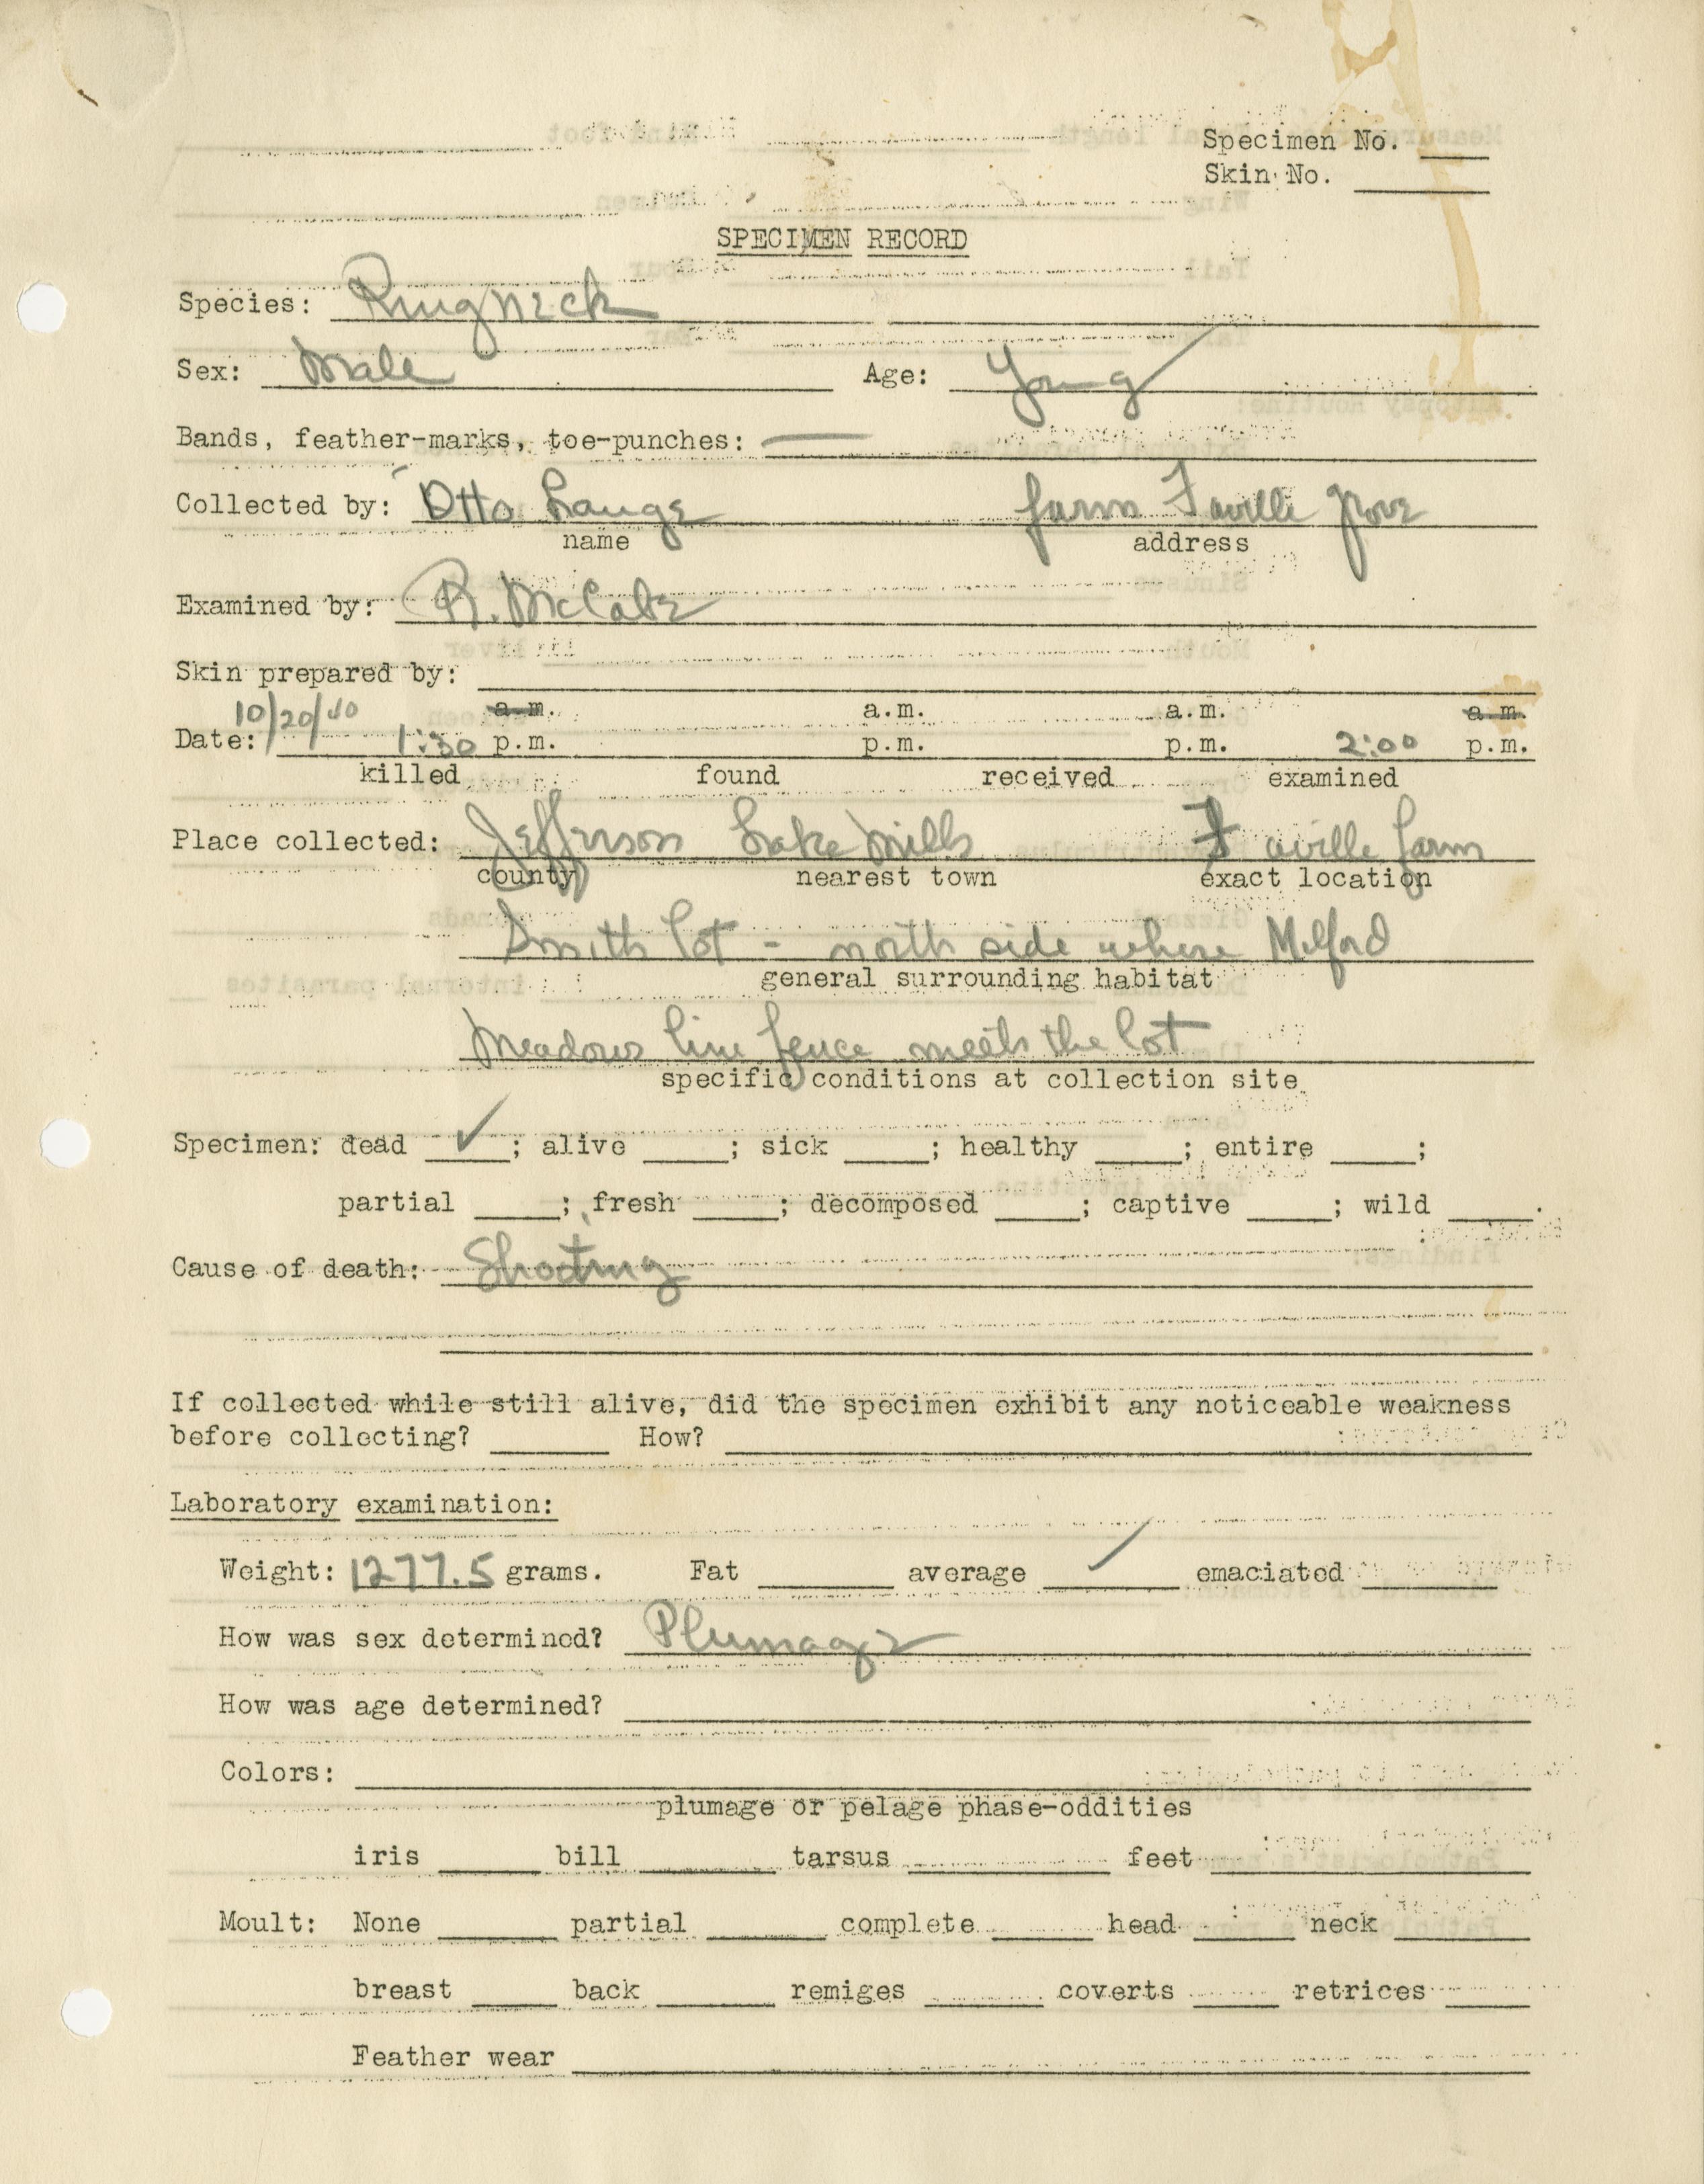 Specimen No. ____
Skin No. ____
SPECIMEN RECORD
Species: Ringneck
Sex: Male Age: Young
Bands, feather-marks, toe-punches: —
Collected by: Otto Lange farm Faville Grove
name address
Examined by: R. McCabe
Skin prepared by:
10/20/40 a.m. a.m. a.m. a.m.
Date: 1:30 p.m. p.m. p.m. 2:00 p.m.
killed found received examined
Place collected: Jefferson Lake Mills Faville farm
county nearest town exact location
Smith lot - north side where Milford
general surrounding habitat
Meadows line fence meets the lot
specific conditions at collection site
Specimen: dead ✓; alive ____; sick ____; healthy ____; entire ____;
partial ____; fresh ____; decomposed ____; captive ____; wild ____.
Cause of death: Shooting
If collected while still alive, did the specimen exhibit any noticeable weakness
before collecting? ____ How? ____
Laboratory examination:
Weight: 1277.5 grams. Fat ____ average ✓ emaciated ____
How was sex determined? Plumage
How was age determined?
Colors:
plumage or pelage phase-oddities
iris ____ bill ____ tarsus ____ feet ____
Moult: None ____ partial ____ complete ____ head ____ neck ____
breast ____ back ____ remiges ____ coverts ____ retrices ____
Feather wear